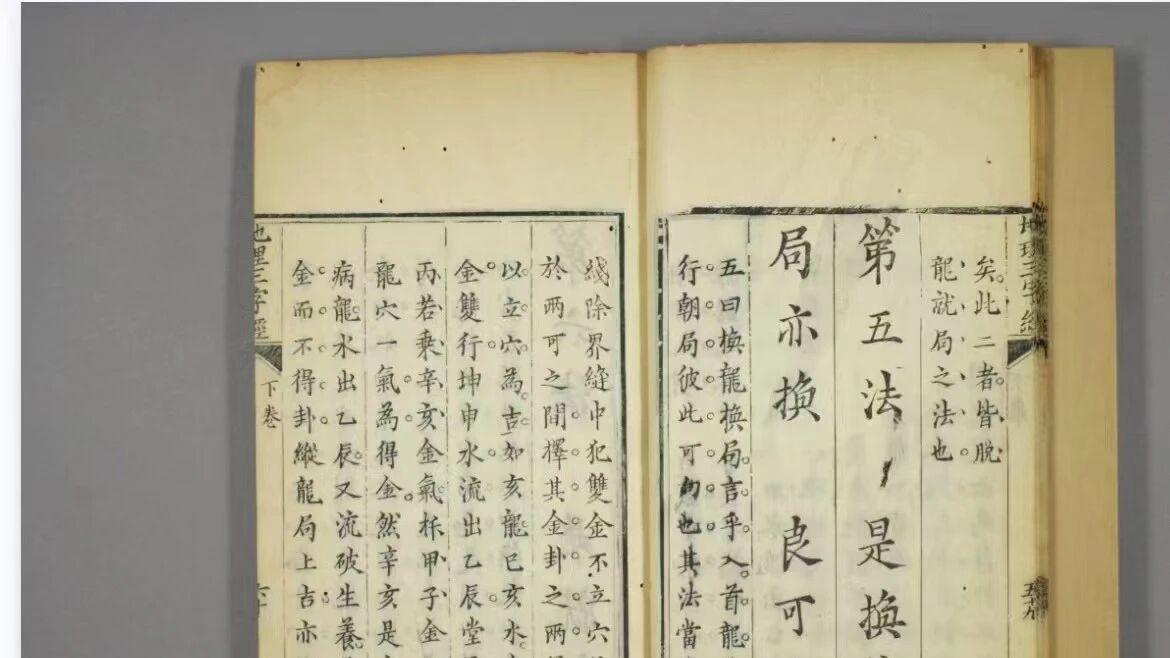 地理三字經
五九
矣此二者皆脫
龍就局之法也
第五法
是換
局亦換
良可
五曰換龍換局言乎入首龍
行朝局彼此可勿也其法當
綫除界縫中犯雙金不立穴
於兩可之間擇其金卦之兩
以立穴為吉如亥龍巳亥水
金雙行坤申水流出乙辰堂
丙若乘辛亥金氣柝甲子金
龍穴一氣為得金然辛亥是
病龍水出乙辰又流破生養
金而不得卦縱龍局上吉亦
地理三字經
下卷
六十